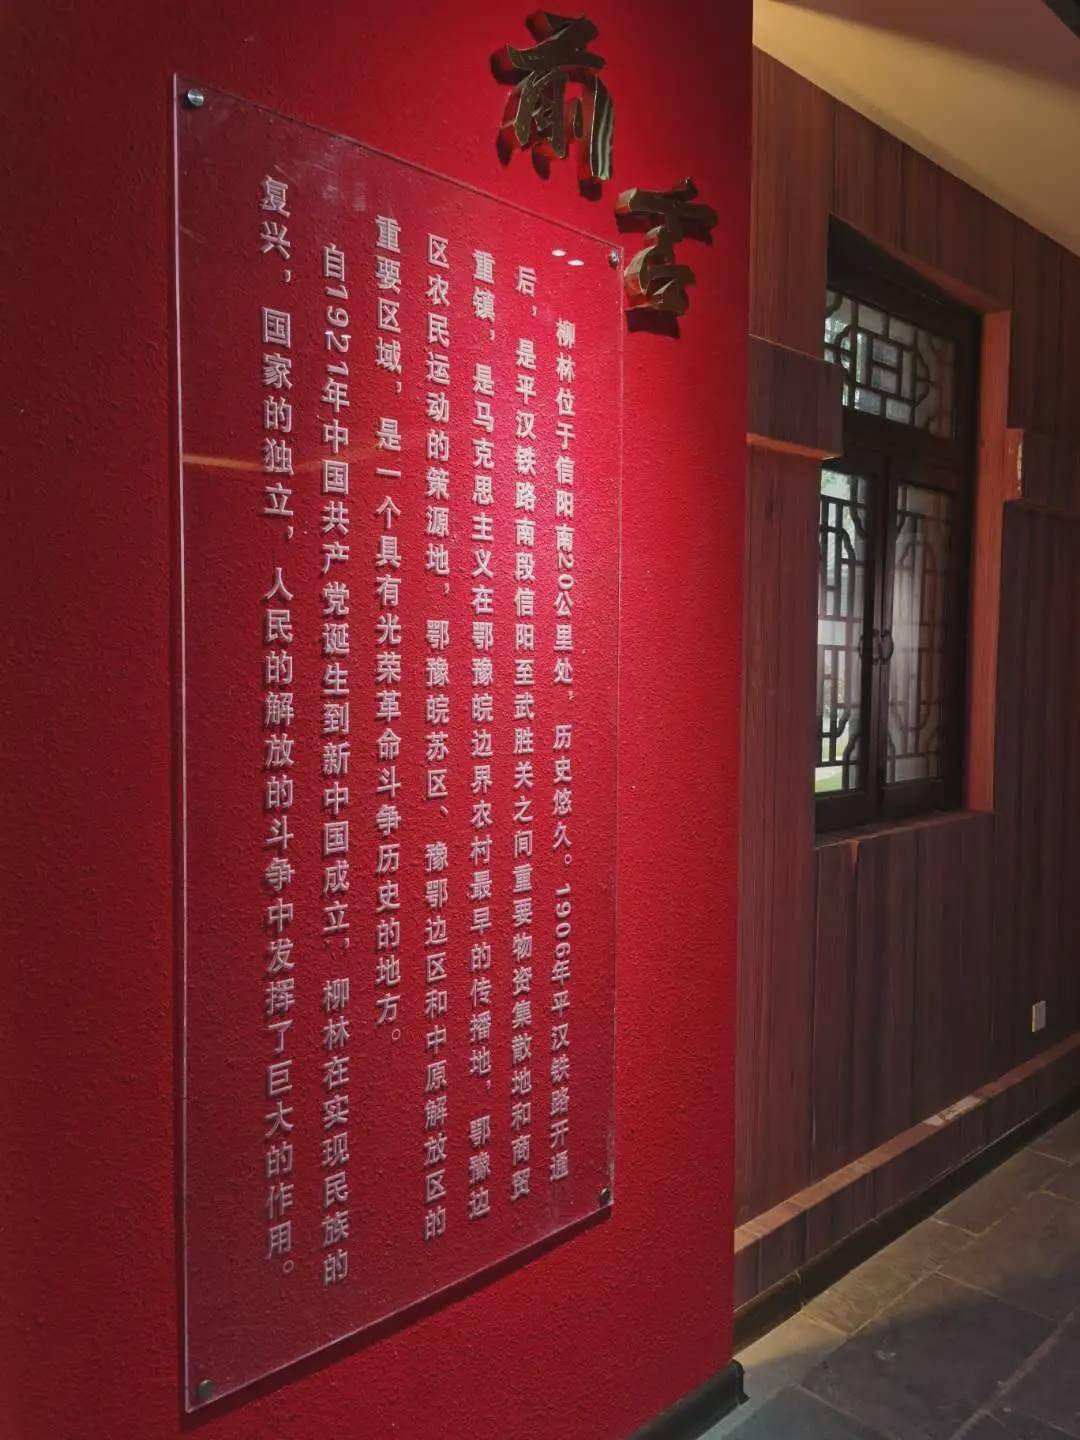 前言
柳林位于信阳南20公里处，历史悠久。1906年平汉铁路开通
后，是平汉铁路南段信阳至武胜关之间重要物资集散地和商贸
重镇，是马克思主义在鄂豫皖边界农村最早的传播地，鄂豫边
区农民运动的策源地，鄂豫皖苏区、豫鄂边区和中原解放区的
重要区域，是一个具有光荣革命斗争历史的地方。
自1921年中国共产党诞生到新中国成立，柳林在实现民族的
复兴，国家的独立，人民的解放的斗争中发挥了巨大的作用。